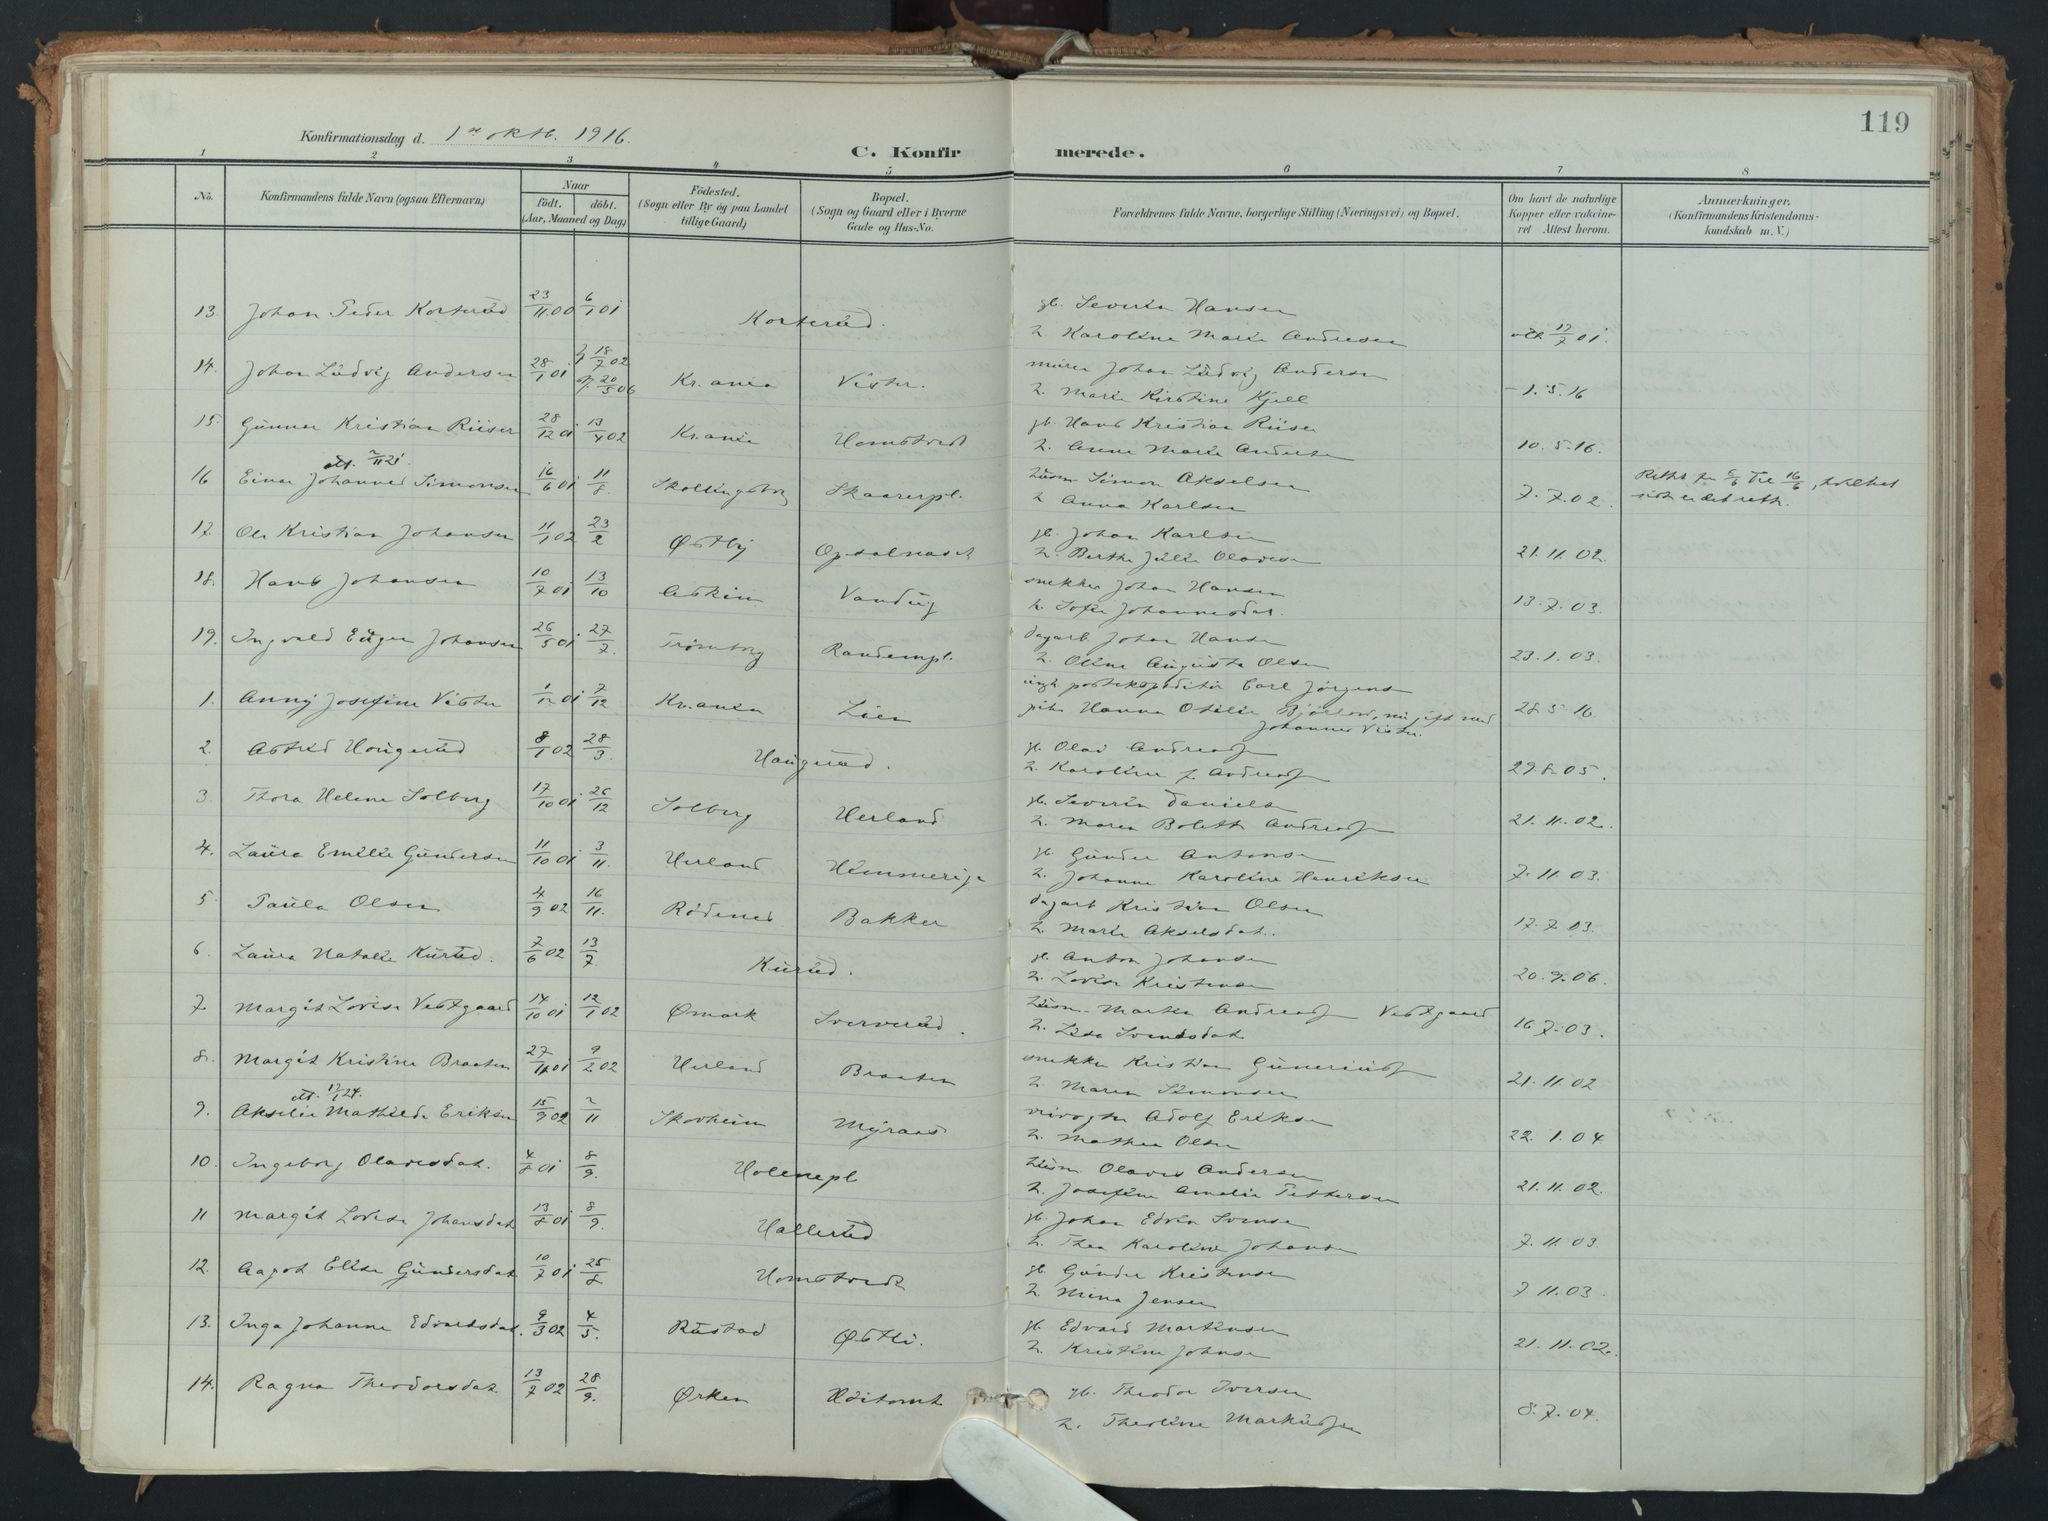 119
Konfirmationsdag d. 1ste oktb. 1916.
C. Konfirmerede.
1 2 3 4 5 6 7 8
No. Konfirmandens fulde Navn (ogsaa Efternavn) Naar födt. döbt. (Aar, Maaned og Dag) Födested. (Sogn eller By og paa Landet tillige Gaard) Bopæl. (Sogn og Gaard eller i Byerne Gade og Hus-No. Forældrenes fulde Navne, borgerlige Stilling (Næringsvei) og Bopæl. Om havt de naturlige Kopper eller vakcineret Attest herom. Anmærkninger. (Konfirmandens Kristendomskundskab m. V.)
13. Johan Peder Korterud 23/11 00 6/1 01 Korterud. gb. Severin Hansen
h. Karoline Marie Andresen 17/7 01.
14. Johan Ludvig Andersen 28/1 01 18/7 02 20/5 06 Kr.ania Vister. murer Johan Ludvig Andersen
h. Marie Kirstine Kjell 1.5.16
15. Gunnar Kristian Riiser 28/12 01 13/4 02 Kr.ania Homstvedt gb. Hans Kristian Riiser
h. Anne Marie Andersen 10.5.16.
att. 2/11 21.
16 Einar Johannes Simonsen 16/6 01 11/8. Skollingsborg Skaarerpl. husm Simon Akselsen
h Anna Karlsen 7.7.02. Rettet fra 6/6 til 16/6, hvilket sidste er det rette.
17. Ole Kristian Johansen 11/1 02 23/2 Østby Opsalnæset gb. Johan Karlsen
h. Berthe Julie Olavesen 21.11.02.
18. Hans Johansen 10/7 01 13/10 Askim Vandug snekker Johan Hansen
h. Sofie Johannesdat. 13.7.03.
19. Ingvald Eugen Johansen 26/5 01 27/7. Trømborg Randempl. dagarb. Johan Hansen
h. Oline Augusta Olsen 23.1.03.
1. Anny Josefine Vister 1/12 01 7/12 Kr.ania Lien ungk. postekspeditør Carl Jørgens
pike Hanna Otilie Bjørlow, nu gift med 28.5.16
Johannes Vister.
2. Astrid Haugerud 8/1 02 28/3. Haugerud. gb. Olav Andreassen
h. Karoline f. Andreassen 29.8.05.
3. Thora Helene Solberg 17/10 01 26/12 Solberg Herland gb. Severin Danielsen
h. Maren Bolette Andreassen 21.11.02.
4. Laura Emilie Gundersen 11/10 01 3/11. Herland Himmerige gb. Gunder Antonsen
h. Johanne Karoline Henriksen 7.11.03.
5. Paula Olsen 4/9 02 16/11. Rødenes Bakker dagarb Kristian Olsen
h. Marie Akselsdat. 17.7.03.
6. Laura Natalie Kurud. 7/6 02 13/7. Kurud. gb. Anton Johansen
h. Lovise Kristensen 20.9.06.
7. Margit Lovise Vestgaard 14/10 01 12/1 02 Ømark Sververud. husm. Martin Andreassen Vestgaard
h. Lisa Svendsdat. 16.7.03.
8. Margit Kristine Braaten 27/11 01 9/2 02 Herland Braaten snekker Kristian Gunneriussen
h. Maren Simonsen 21.11.02
att. 17/1 24.
9. Akselia Mathilde Eriksen 15/9 02 2/11 Skovheim Myraas veivogter Adolf Eriksen
h. Mathea Olsen 22.1.04.
10. Ingeborg Olavesdat. 4/8 01 8/9. Holenepl husm. Olaves Andersen
h. Josefine Amelie Pettersen 21.11.02.
11 Margit Lovise Johansdat 13/8 01 8/9. Hallerud gb. Johan Edvin Svensen
h. Thea Karoline Johansen 7.11.03.
12. Aagot Elise Gundersdat. 10/7 01 25/8 Homstvedt gb. Gunder Kristensen
h. Mina Jensen 7.11.03.
13. Inga Johanne Edvardsdat. 9/3 02 4/5. Rustad Østli. gb. Edvard Martinsen
h. Kristine Johnsen 21.11.02.
14. Ragna Theodorsdat. 13/7 02 28/9. Ørken Høitomt gb. Theodor Iversen
h. Theoline Markussen 8.7.04.